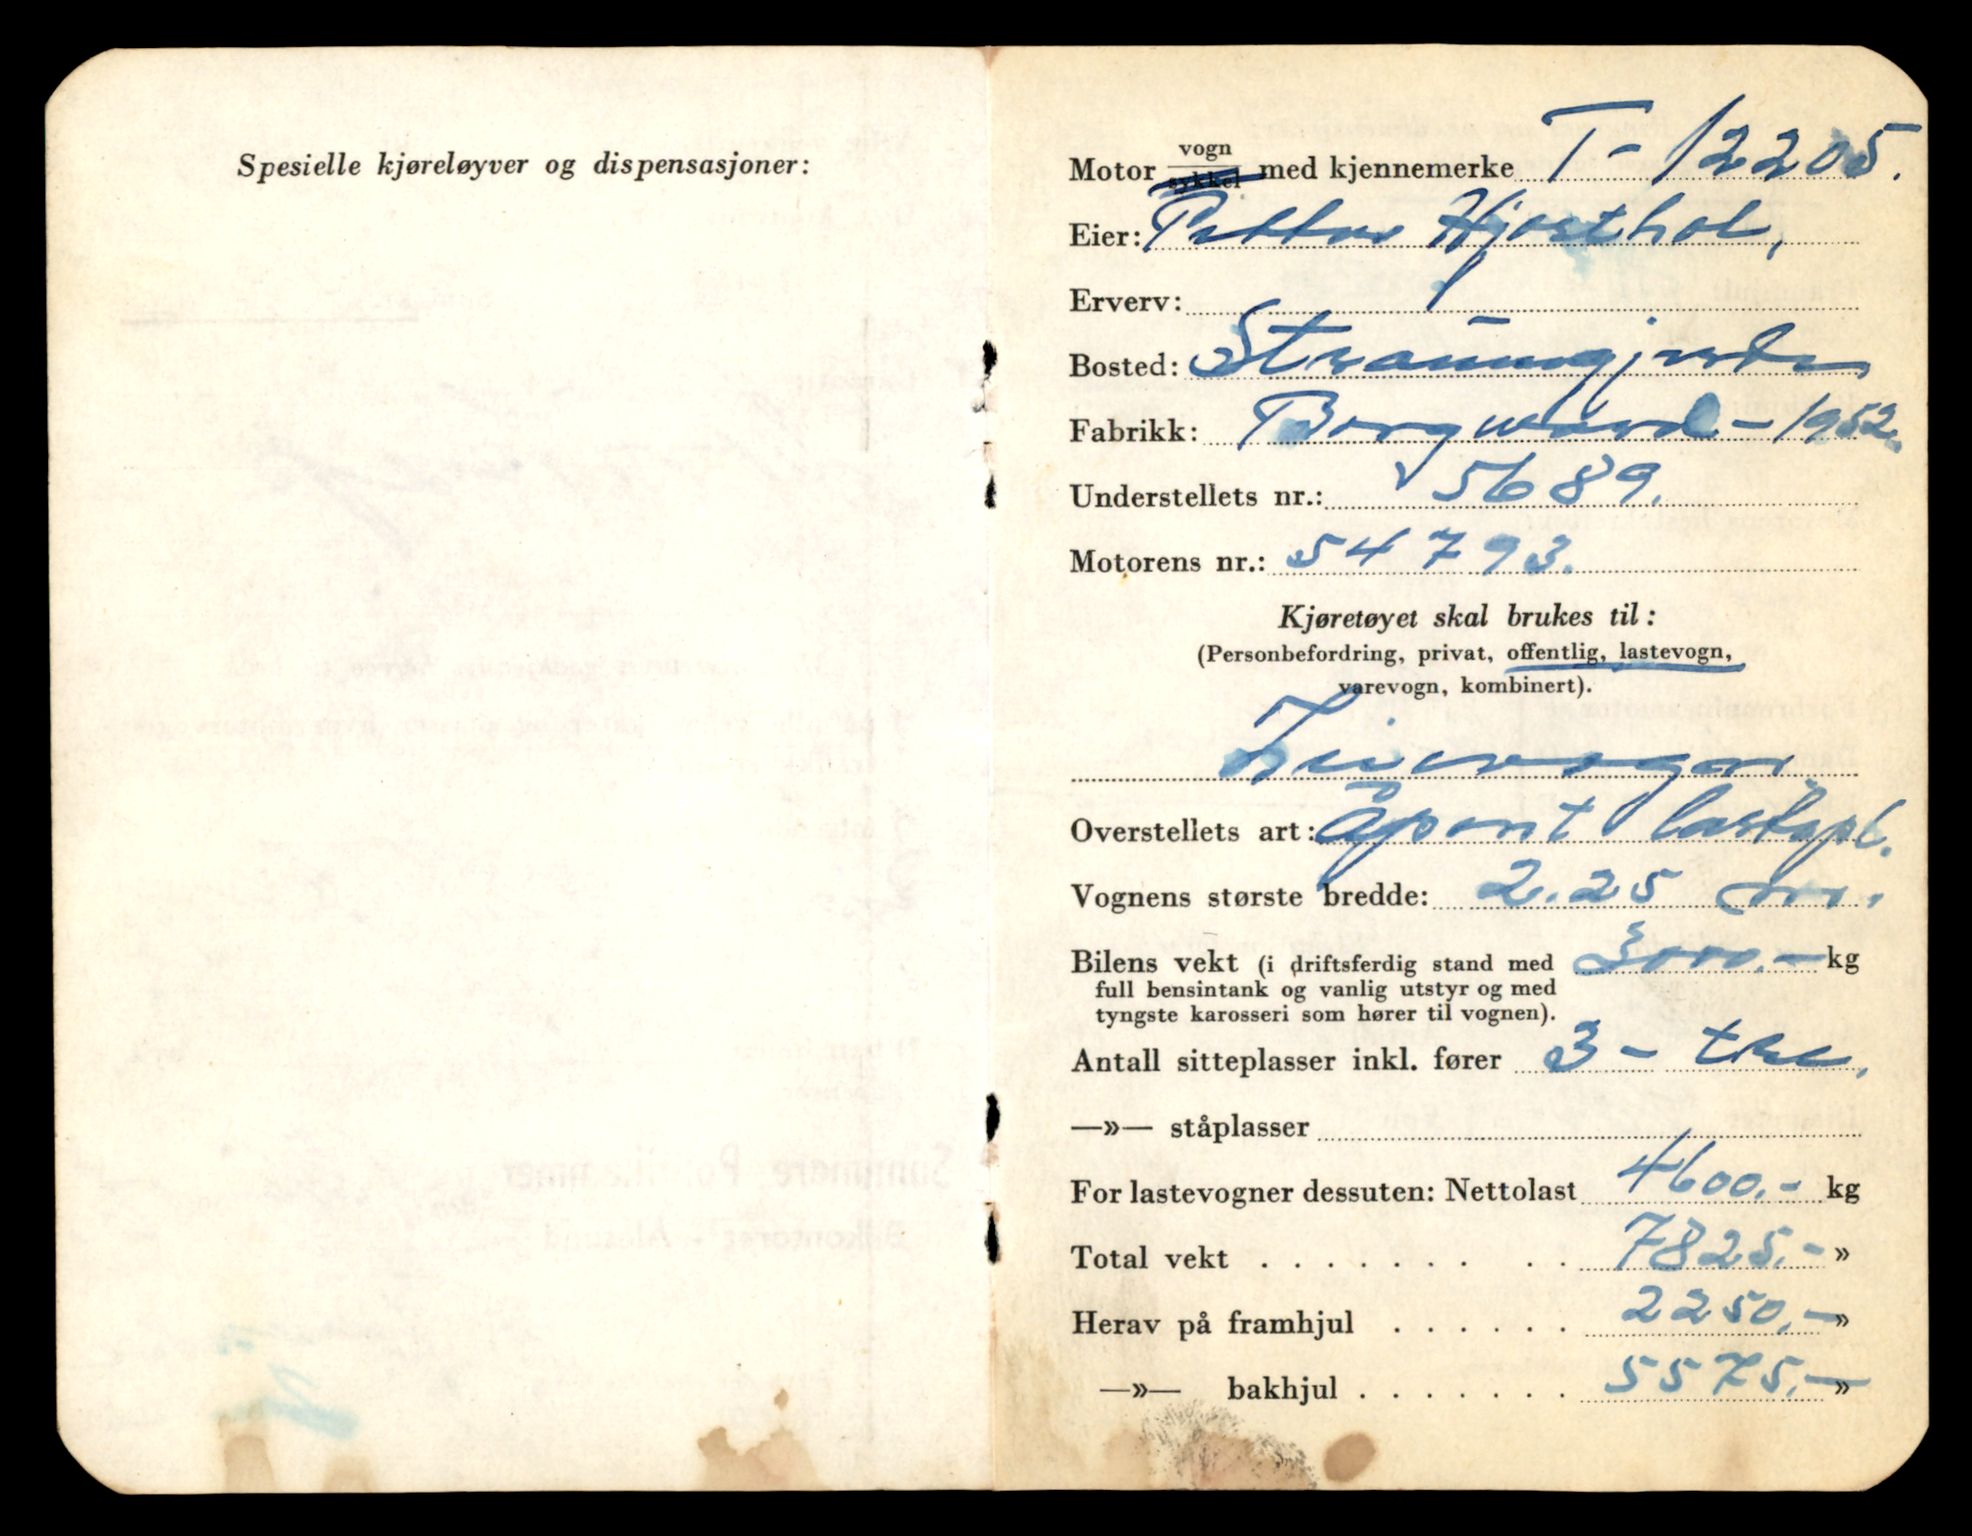 Spesielle kjøreløyver og dispensasjoner:
Motor vogn sykkel med kjennemerke T-12205.
Eier: Petter Hjorthol,
Erverv:
Bosted: Straumgjerde
Fabrikk: Borgward - 1952.
Understellets nr.: 5689.
Motorens nr.: 54793.
Kjøretøyet skal brukes til:
(Personbefordring, privat, offentlig, lastevogn,
varevogn, kombinert).
Leievogn
Overstellets art: Åpent lastepl.
Vognens største bredde: 2.25 m.
Bilens vekt (i driftsferdig stand med 3000.- kg
full bensintank og vanlig utstyr og med
tyngste karosseri som hører til vognen).
Antall sitteplasser inkl. fører 3 - tre.
—»— ståplasser
For lastevogner dessuten: Nettolast 4600.- kg
Total vekt . . . . . . . . . 7825.- »
Herav på framhjul . . . . . . 2250.- »
—»— bakhjul . . . . . . . 5575.- »